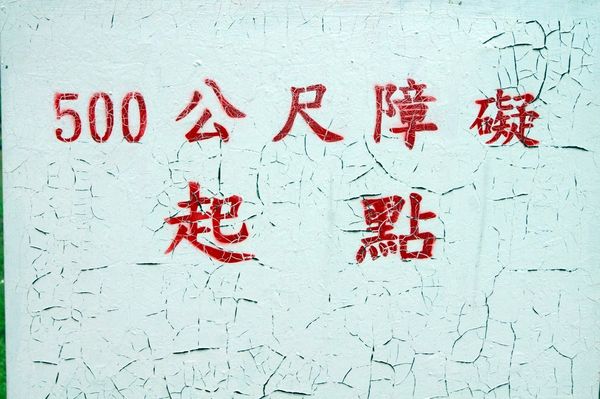 500公尺障礙
起點